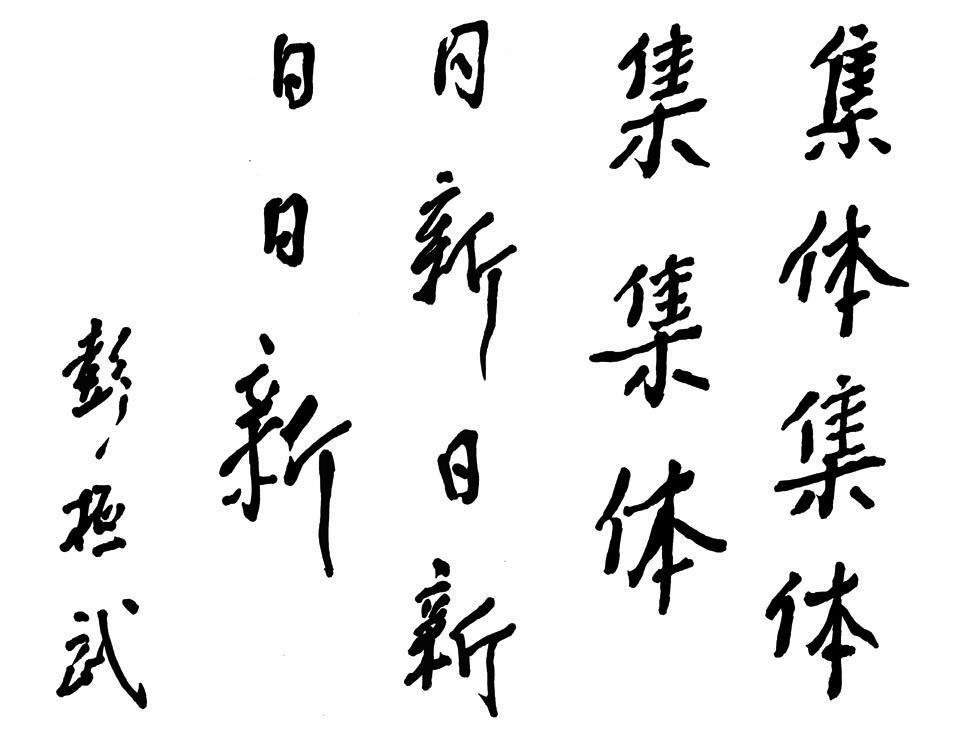 集体集体
集集体
日新日新
日日新
彭极武